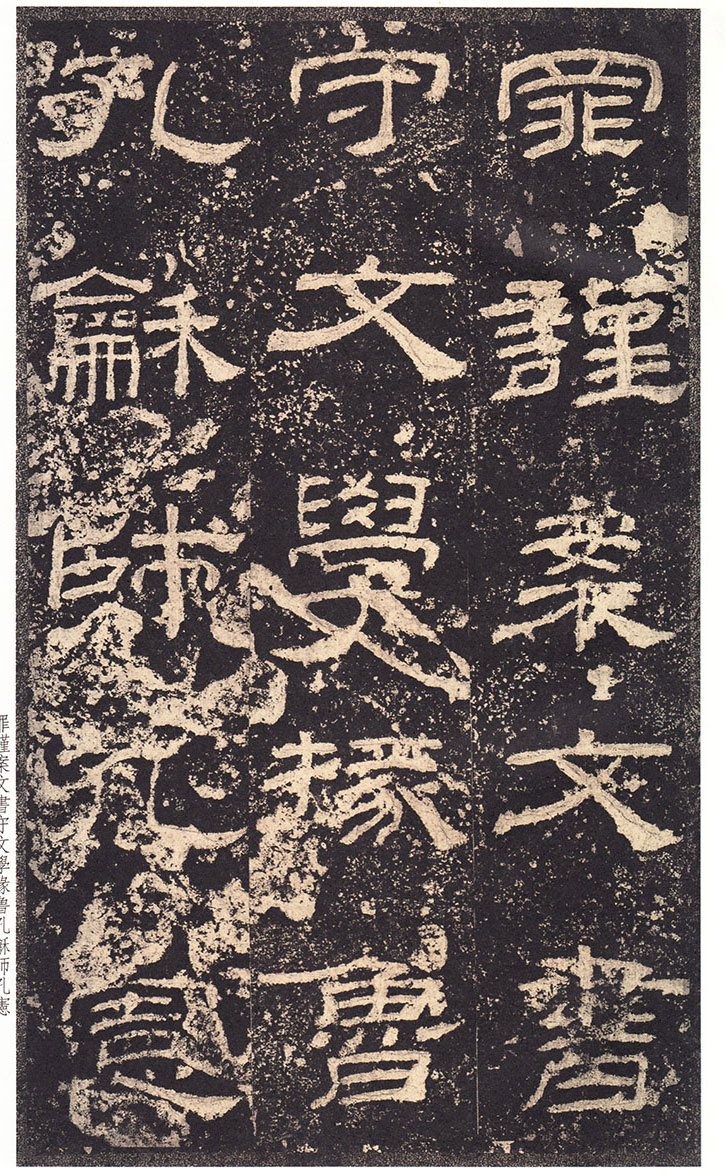 罪謹案文書
守文學掾魯
孔龢師孔憲
罪謹案文書守文學掾魯孔龢師孔憲